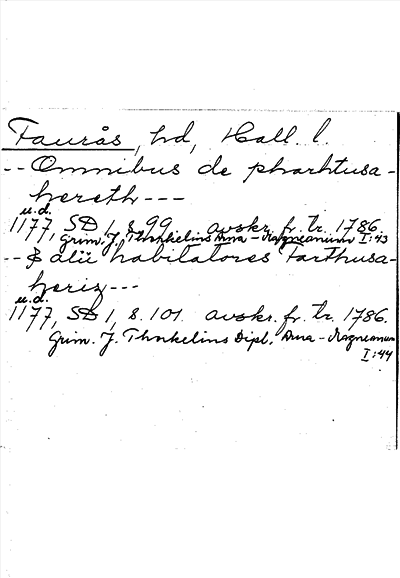 Faurås, hd, Hall. l.
-- Omnibus de pharhtusa-
hereth ---
u.d.
1177, SD 1, s. 99. avskr. fr. tr. 1786.
Grim. J. Thorkelins Arna-Magneanum I:43
-- & alii habitatores Farthusa-
heriz ---
u.d.
1177, SD 1, s. 101. avskr. fr. tr. 1786.
Grim. J. Thorkelins Dipl. Arna-Magneanum
I:44